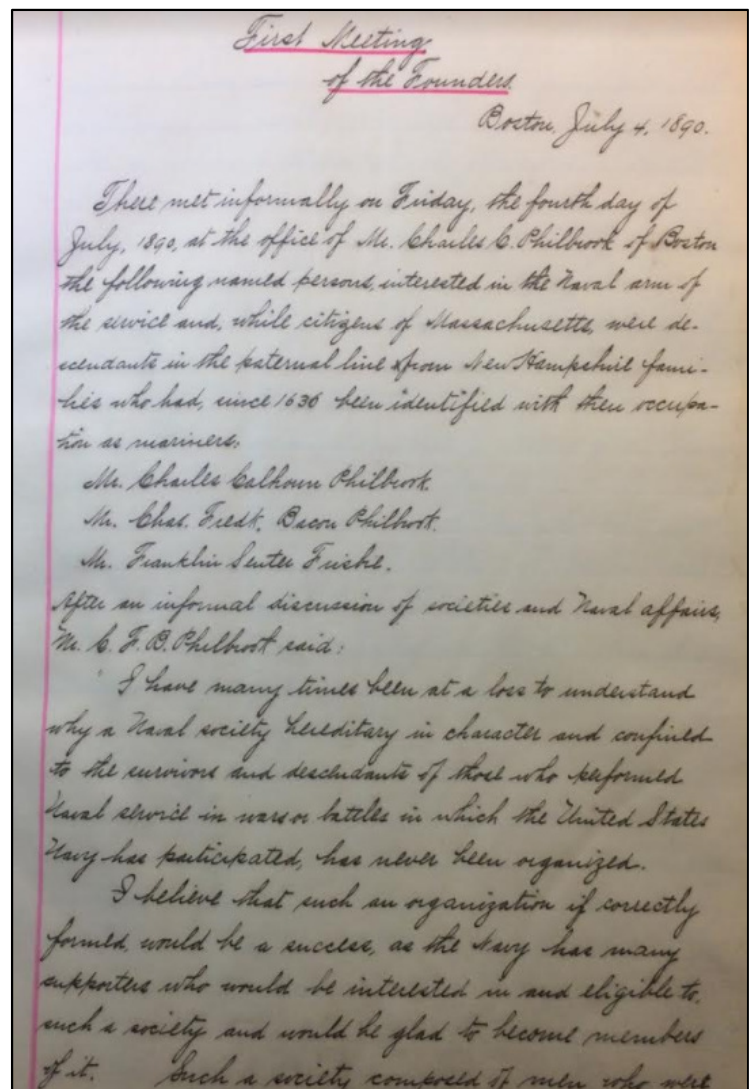 First Meeting
of the Founders.
Boston, July 4, 1890.
There met informally on Friday, the fourth day of
July, 1890, at the office of Mr. Charles C. Philbrook of Boston
the following named persons, interested in the Naval arm of
the service and, while citizens of Massachusetts, were de-
scendants in the paternal line from New Hampshire fami-
lies who had, since 1636 been identified with their occupa-
tion as mariners:
Mr. Charles Calhoun Philbrook.
Mr. Chas. Fredk. Bacon Philbrook.
Mr. Franklin Senter Frisbie.
After an informal discussion of societies and Naval affairs,
Mr. C. F. B. Philbrook said:
I have many times been at a loss to understand
why a Naval society hereditary in character and confined
to the survivors and descendants of those who performed
Naval service in wars or battles in which the United States
Navy has participated, has never been organized.
I believe that such an organization if correctly
formed, would be a success, as the Navy has many
supporters who would be interested in and eligible to,
such a society and would be glad to become members
of it. Such a society composed of men who were